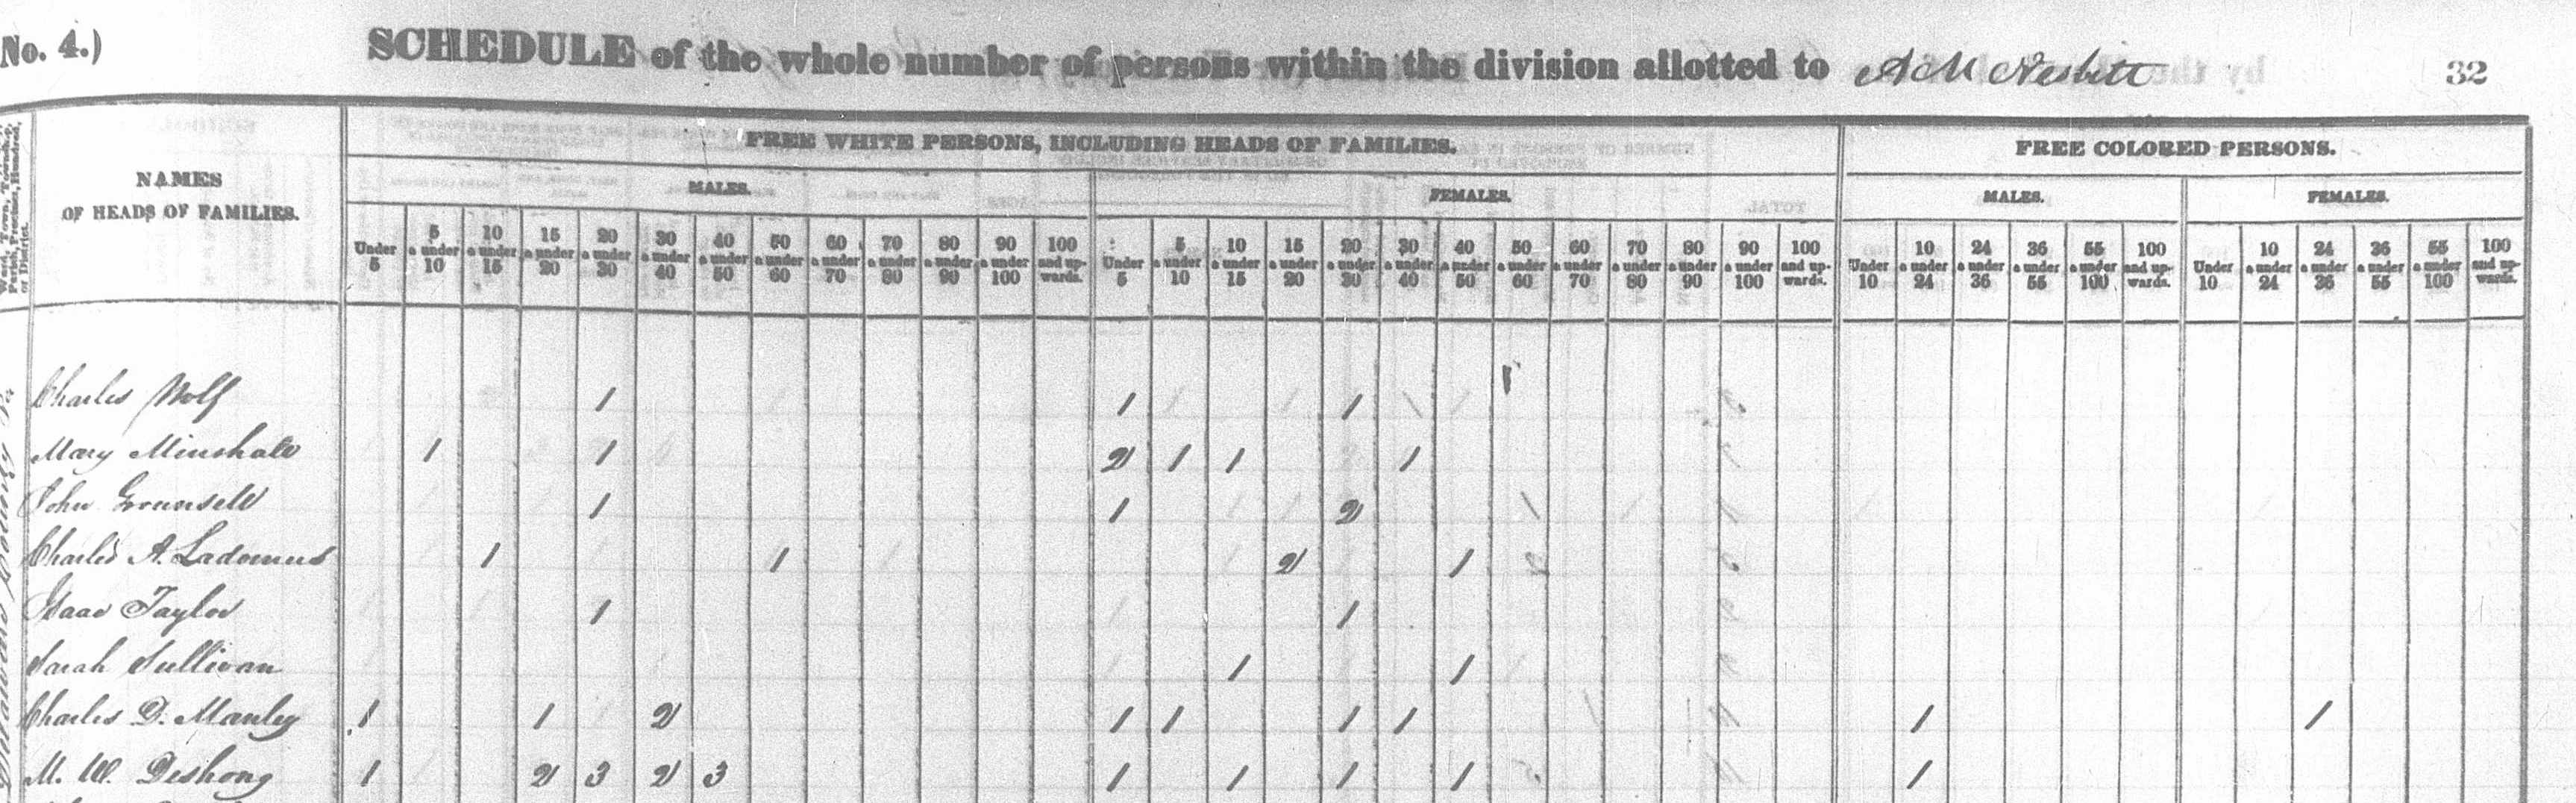 No. 4.) SCHEDULE of the whole number of persons within the division allotted to A M Nesbitt 32
FREE WHITE PERSONS, INCLUDING HEADS OF FAMILIES. FREE COLORED PERSONS.
NAMES OF HEADS OF FAMILIES.
MALES. FEMALES. MALES. FEMALES.
Under 5 5 a under 10 10 a under 15 15 a under 20 20 a under 30 30 a under 40 40 a under 50 50 a under 60 60 a under 70 70 a under 80 80 a under 90 90 a under 100 100 and up- wards. Under 5 5 a under 10 10 a under 15 15 a under 20 20 a under 30 30 a under 40 40 a under 50 50 a under 60 60 a under 70 70 a under 80 80 a under 90 90 a under 100 100 and up- wards. Under 10 10 a under 24 24 a under 36 36 a under 55 55 a under 100 100 and up- wards. Under 10 10 a under 24 24 a under 36 36 a under 55 55 a under 100 100 and up- wards.
Charles Wolf 1 1 1
Mary Minshall 1 1 2 1 1 1
John Grounsell 1 1 2
Charles A. Ladomus 1 1 2 1
Isaac Taylor 1 1
Sarah Sullivan 1 1
Charles D. Manley 1 1 2 1 1 1 1 1 1
M. W. Deshong 1 2 3 2 3 1 1 1 1 1